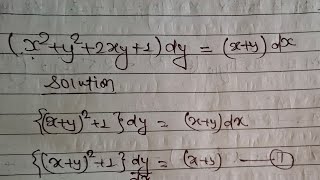 (x²+y²+2xy+1) dy = (x+y) dx
Solution
{(x+y)²+1} dy = (x+y) dx
{(x+y)²+1} dy/dx = (x+y) —— ①